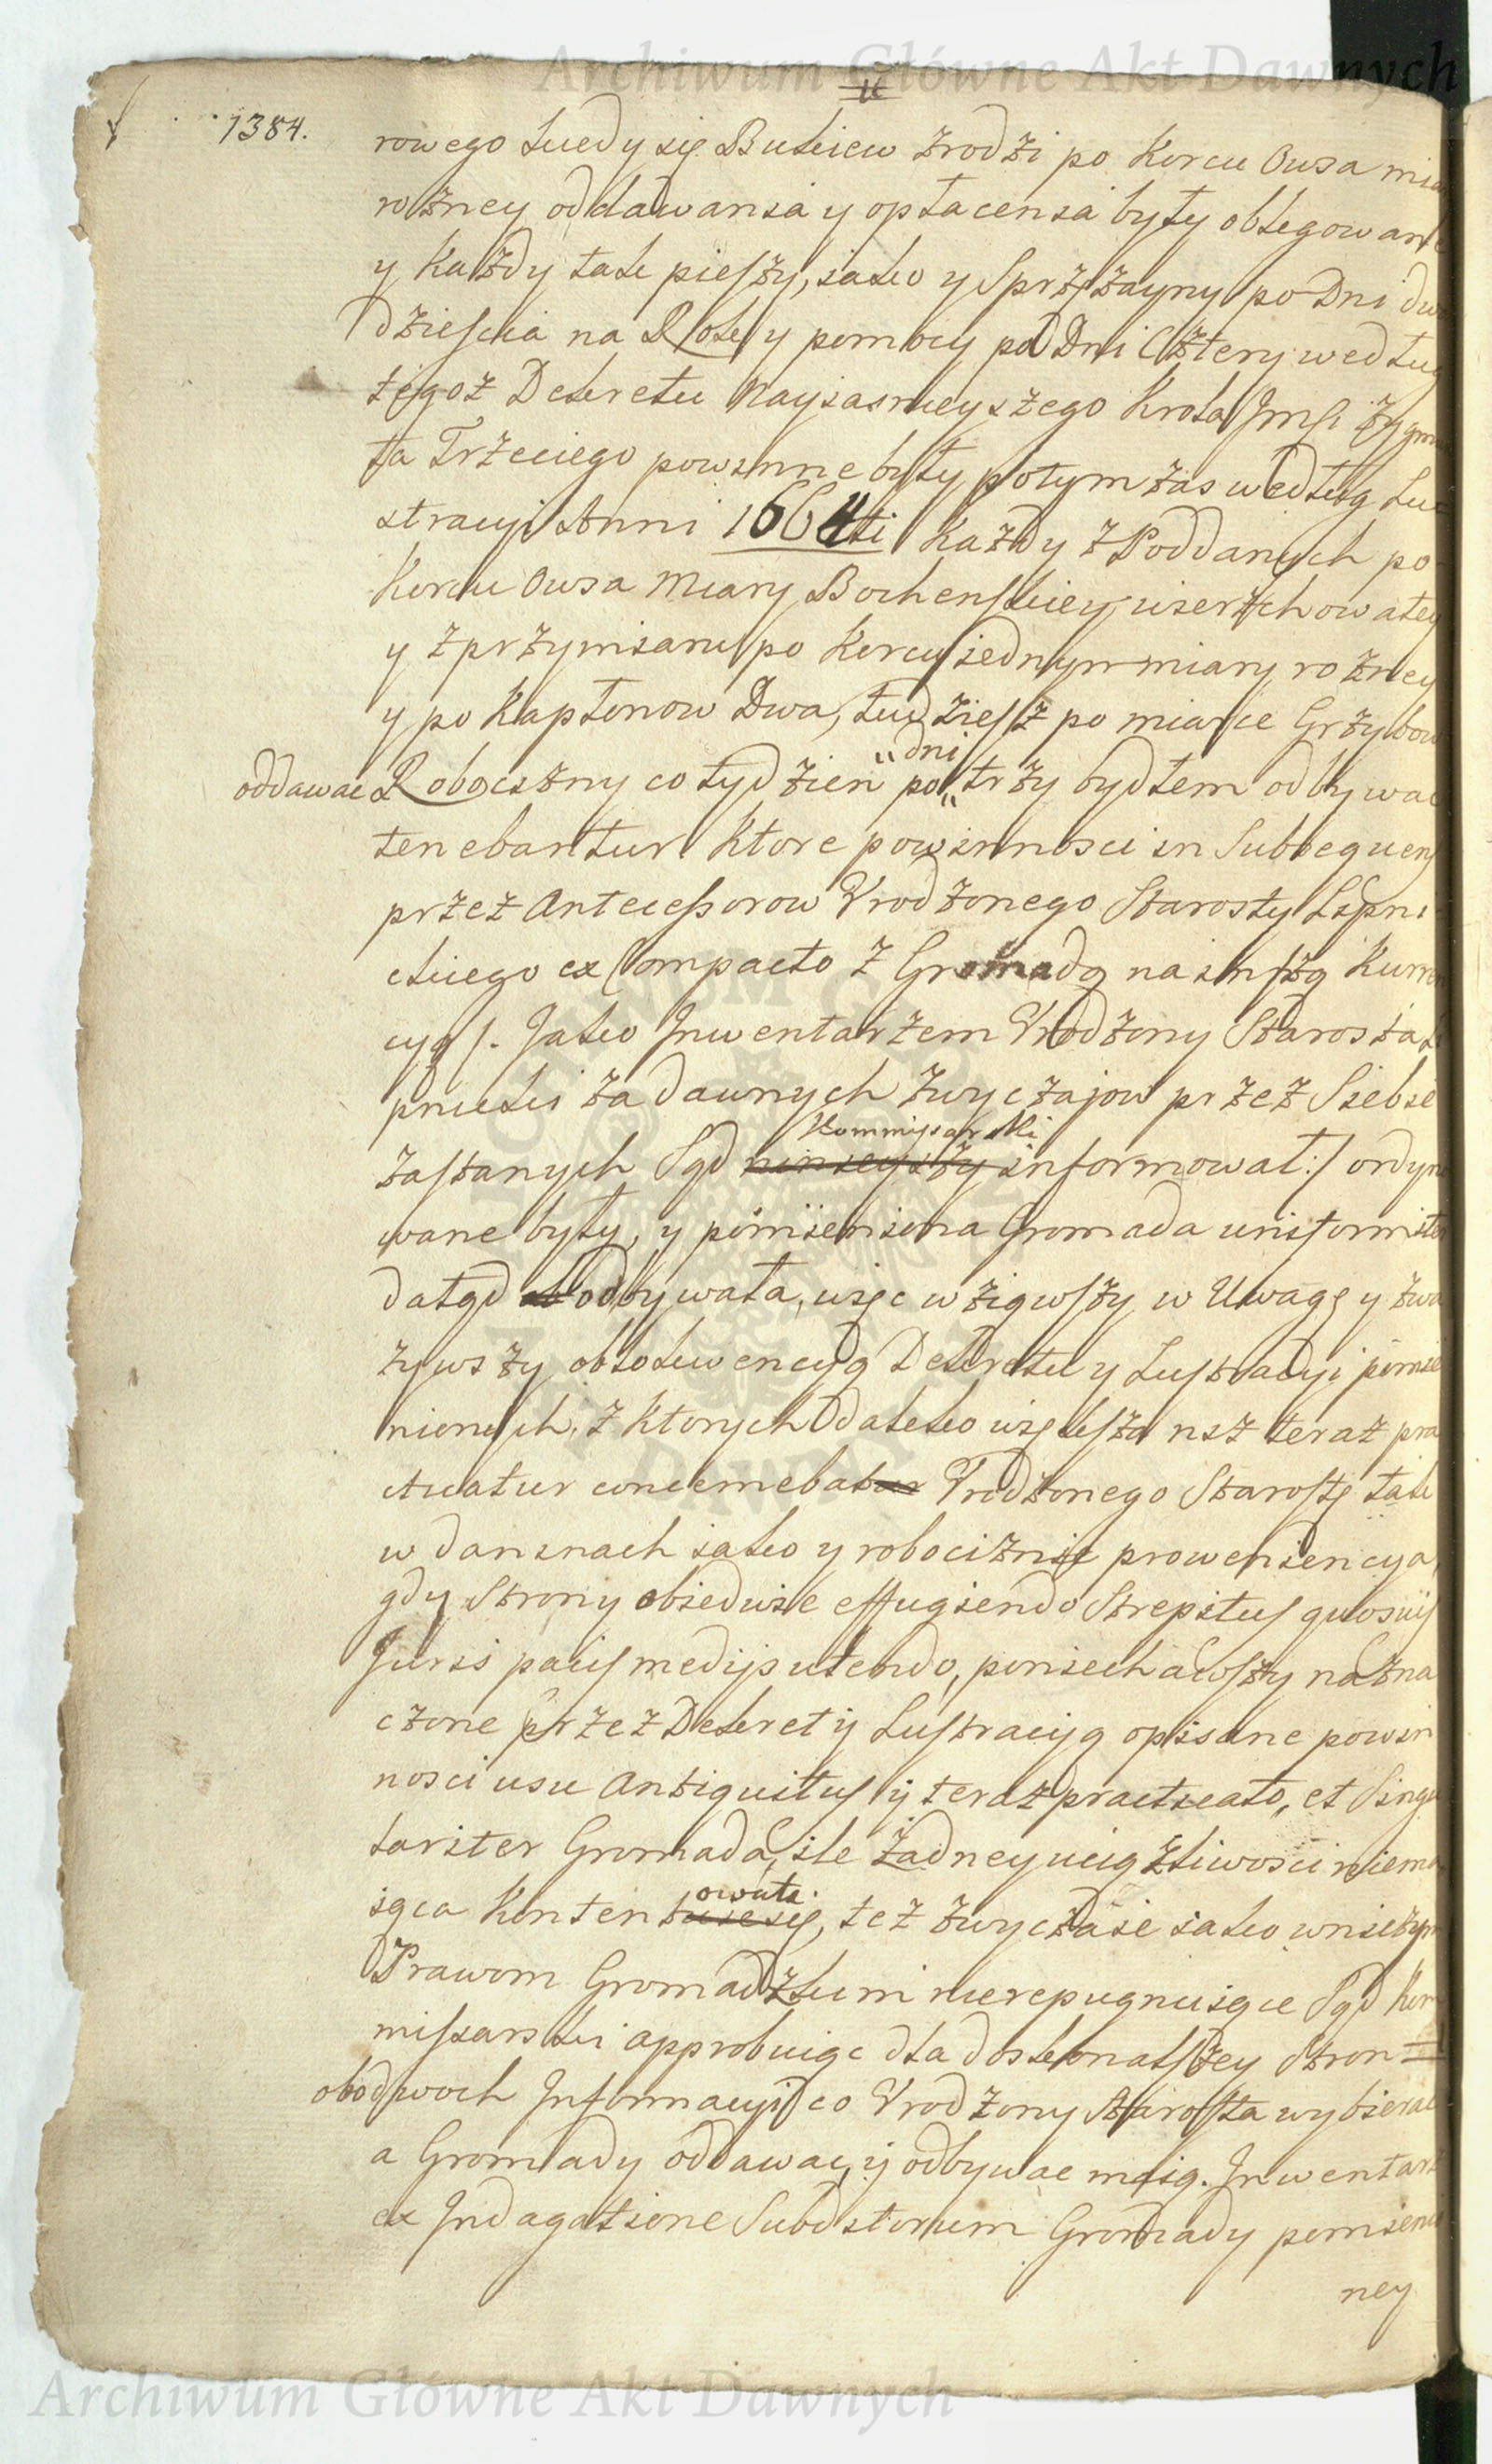 Archiwum Główne Akt Dawnych
1384.
rowego kiedy się Bukiew zrodzi po Korcu Owsa mia
rożney oddawania y opłacenia były obligowane
y każdy tak pieszy, iako y Sprzężayny po Dni dwa
dzieścia na Rok y pomocy po Dni Cztery według
tegoż Dekretu Nayiasnieyszego Krola Jmsi Zygmu
ta Trzeciego powinne były potym zas według Lu
stracyi Anni 1664ti każdy z Poddanych po
Korcu Owsa Miary Bochenskiey wierzchowatey
y z przymiaru po Korcu iednym miary rożney
y po Kapłonow Dwa, tudziesz po miarce Grzybow
oddawac Roboczny co tydzien po dni trzy bydłem odbywac
tenebantur ktore powinnosci in Subsequens
przez Antecessorow Urodzonego Starosty Lipni
ckiego ex Compacto z Gromadą na inszą Kurren
cyą /. Jako Jnwentarzem Urodzony Starosta Li
pnicki za dawnych zwyczajow przez Siebie
zastanych Sąd ninieyszy Kommissarski informował :/ ordyno
wane były, y pomieniona Gromada uniformiter
dotąd odbywała, więc wziąwszy w Uwagę y zwa
żywszy obloquencyą Dekretu y Lustracyi pomie
nionych, z ktorych daleko większa niż teraz pra
cticatur concernebat Urodzonego Starostę tak
w daninach iako y robociznie proweniencya
gdy Strony obiedwie effugiendo Strepitus quosvis
Juris pacis medijs utendo, poniechawszy nazna
czone przez Dekret y Lustracyą opisane powin
nosci usu Antiquitus y teraz practicato, et Singu
lariter Gromada, ile żadney uciążliwosci niema
iąca kontentuie się owała, też zwyczaie iako wniczym
Prawom Gromadzkim nierepugnuiące Sąd Kom
missarski approbuiąc dla doskonalszey Stron
obodwoch Jnformacyi co Urodzony Starosta wybierac
a Gromady oddawac, y odbywac maią. Jnwentarz
ex Jndagatione Subditorum Gromady pomienio
ney
Archiwum Główne Akt Dawnych